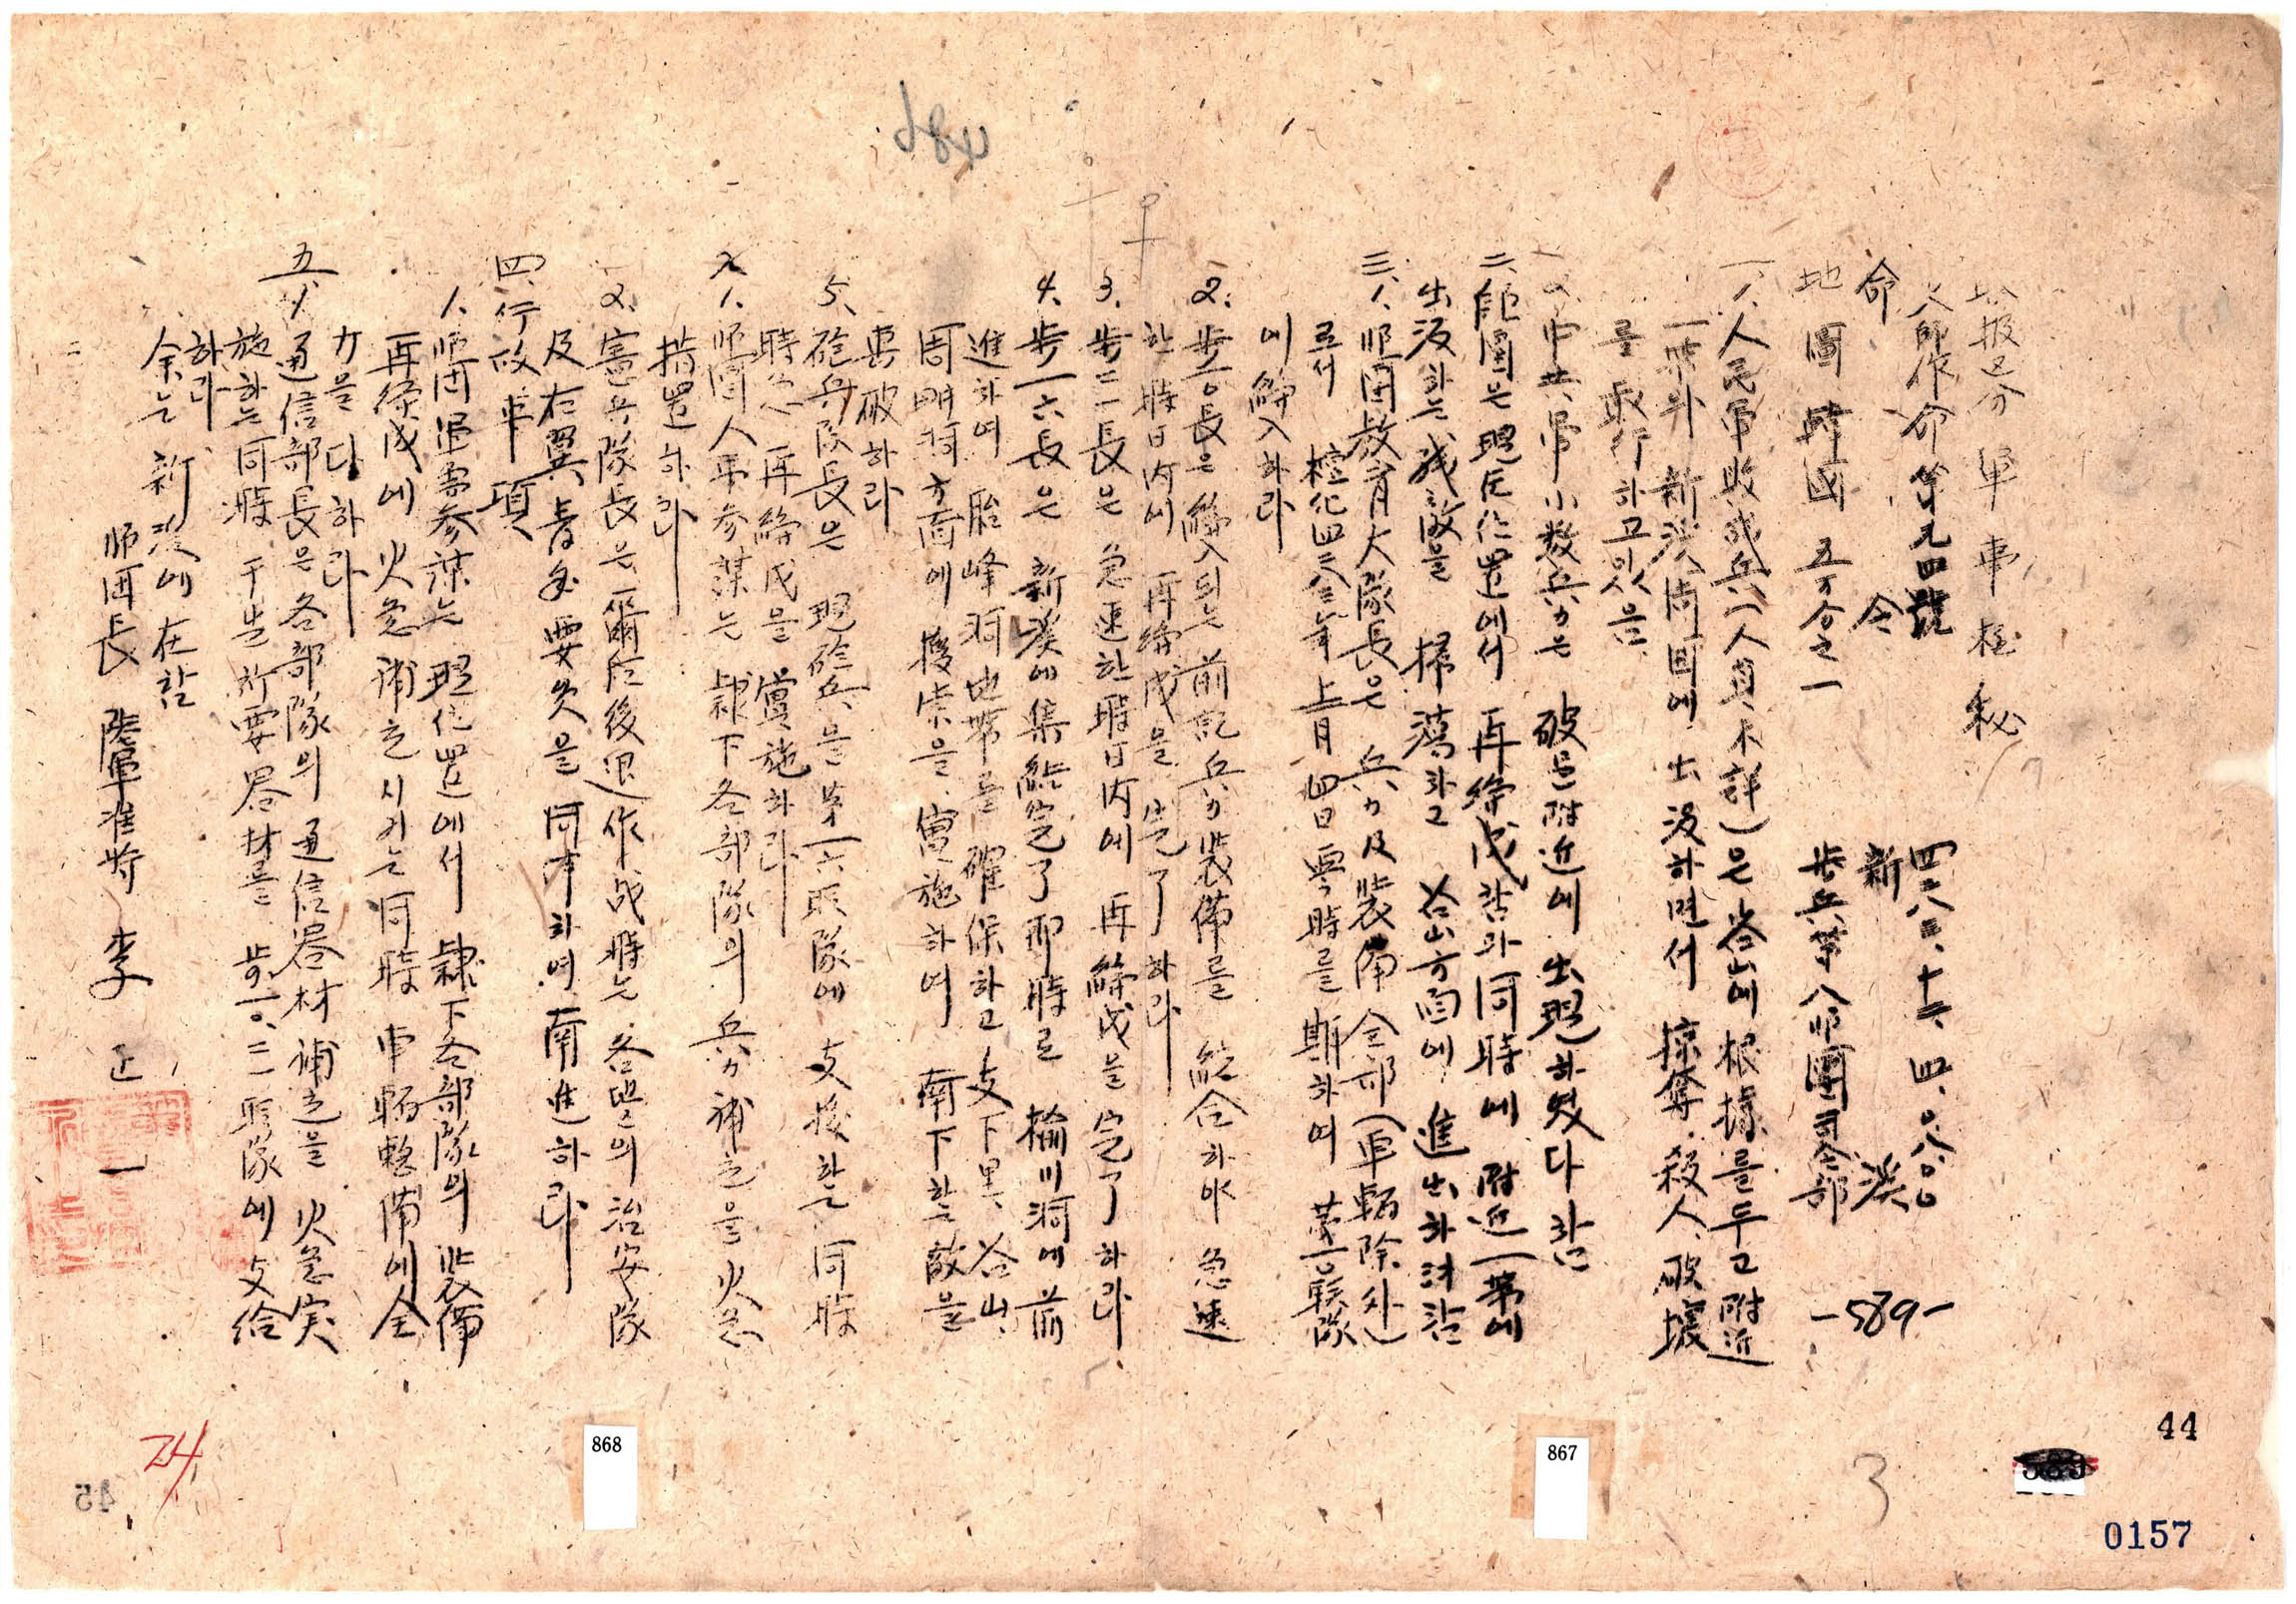 報 区 分 軍 事 極 秘
八師作命第九四號 四二八三、十二、四、〇八〇〇
命 令 新 溪
地 圖 韓國 五万分之一 步兵第八師團司令部
-589-
一、1、人民軍敗残兵(人員不詳)은 谷山에 根據를 두고 附近
一帶와 新溪 周囲에 出没하면서 掠奪、殺人、破壊
를 敢行하고있음
2、中共軍小数兵力은 破邑附近에 出現하였다 함
二、師團은 現位置에서 再編成함과 同時에 附近一帯에
出没하는 残敵을 掃蕩하고 谷山方面에 進出하려함
三、1、師團教育大隊長은 兵力及装備 全部(車輌除外)
로서 檀紀四二八三年 十二月 四日 零時를 期하여 第一〇联隊
에 編入하라
2、步一〇長은 編入되는 前記兵力装備를 統合하야 急速
한 時日内에 再編成을 完了하라
3、步二一長은 急速한 時日内에 再編成을 完了하라
4、步一六長은 新溪에 集結完了 即時로 楡川洞에 前
進하여 胎峰洞地帯를 確保하고 支下里、谷山、
周明洞方面에 搜索을 實施하여 南下하는 敵을
専破하라
5、砲兵隊長은 現砲兵을 第一六联隊에 支援하는 同時
時急 再編成을 實施하라
1、師團人事参謀는 隷下各部隊의 兵力補充을 火急
措置하라
2、憲兵隊長은 爾後後退作戦時는 各里의 治安隊
及右翼青年要员을 同伴하여 南進하라
四、行政事項
1、師團軍需参謀는 現位置에서 隷下各部隊의 装備
再編成에 火急 補充시키는 同時 車輌整備에 全
力을 다하라
五、1、通信部長은 各部隊의 通信器材補充을 火急実
施하는 同時 于先 所要器材를 步一〇、二一联隊에 支給
하라
余는 新溪에 在함
師団長 陸軍准將 李 正 一
868
867
44
0157
3
24
45